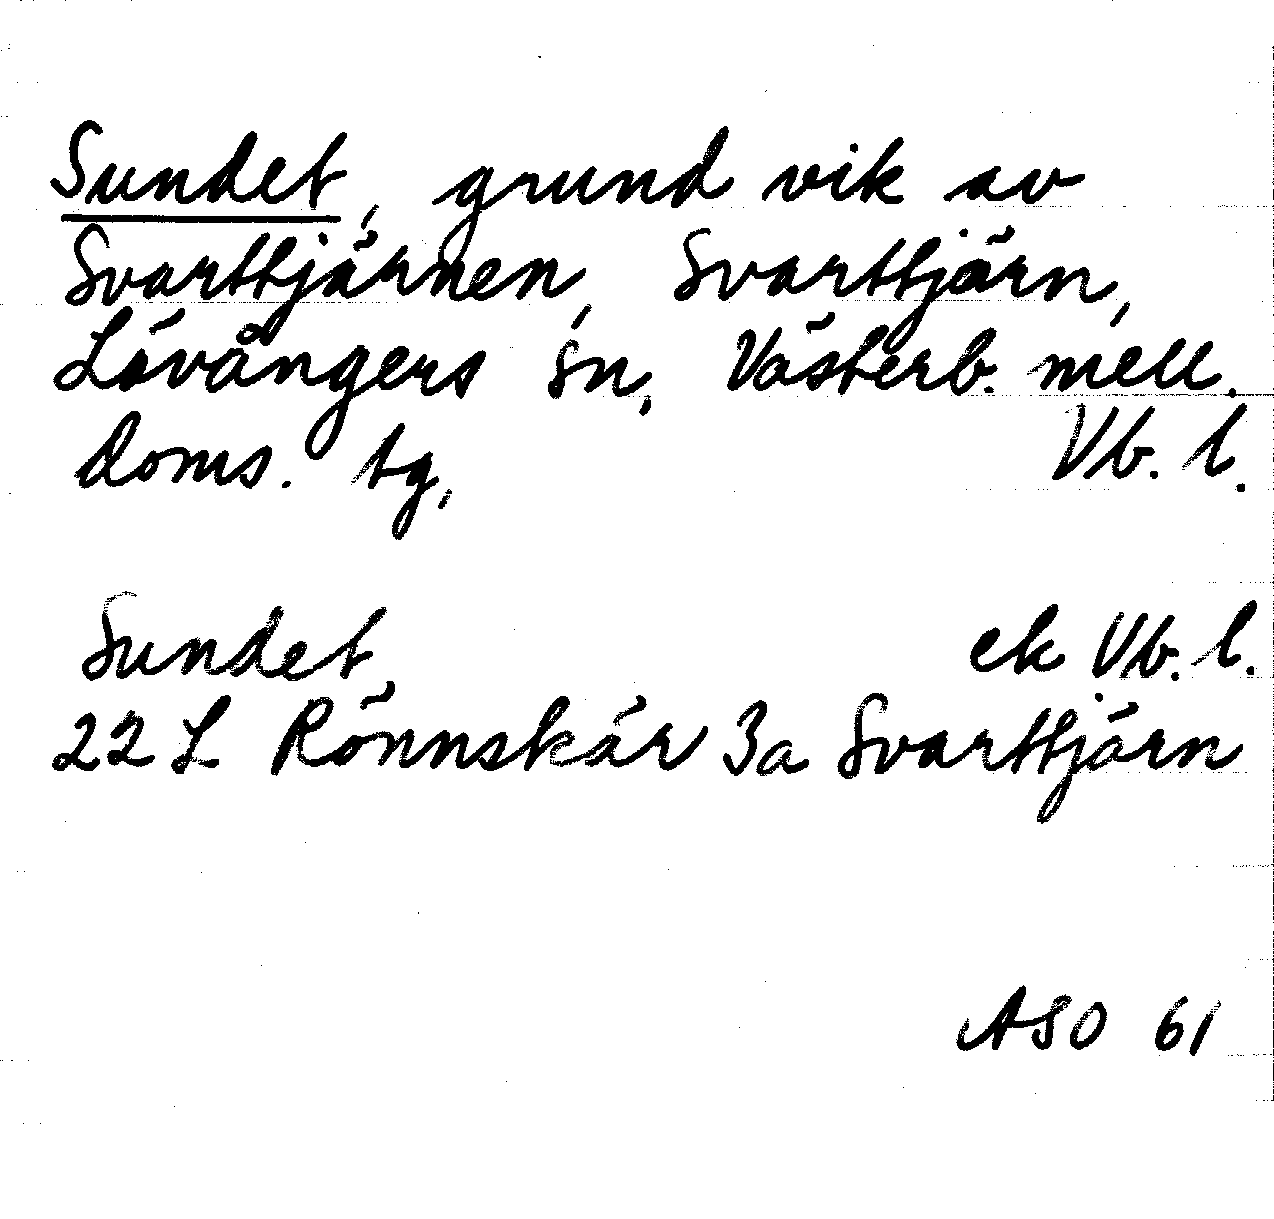 Sundet, grund vik av
Svarttjärnen, Svarttjärn,
Lövångers sn, Västerb. mell.
doms. tg, Vb. l.
Sundet ek Vb. l.
22 L Rönnskär 3a Svarttjärn
ASO 61